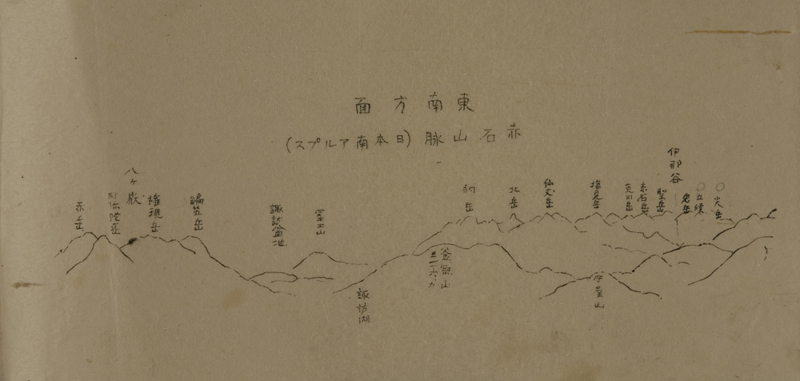 東南方面
赤石山脈(日本南アルプス)
伊那谷
聖岳
赤石岳
荒川岳
塩見岳
仙丈岳
北岳
富士山
諏訪盆地
編笠岳
権現岳
八ヶ嶽
赤岳
守屋山
釜無山
諏訪湖